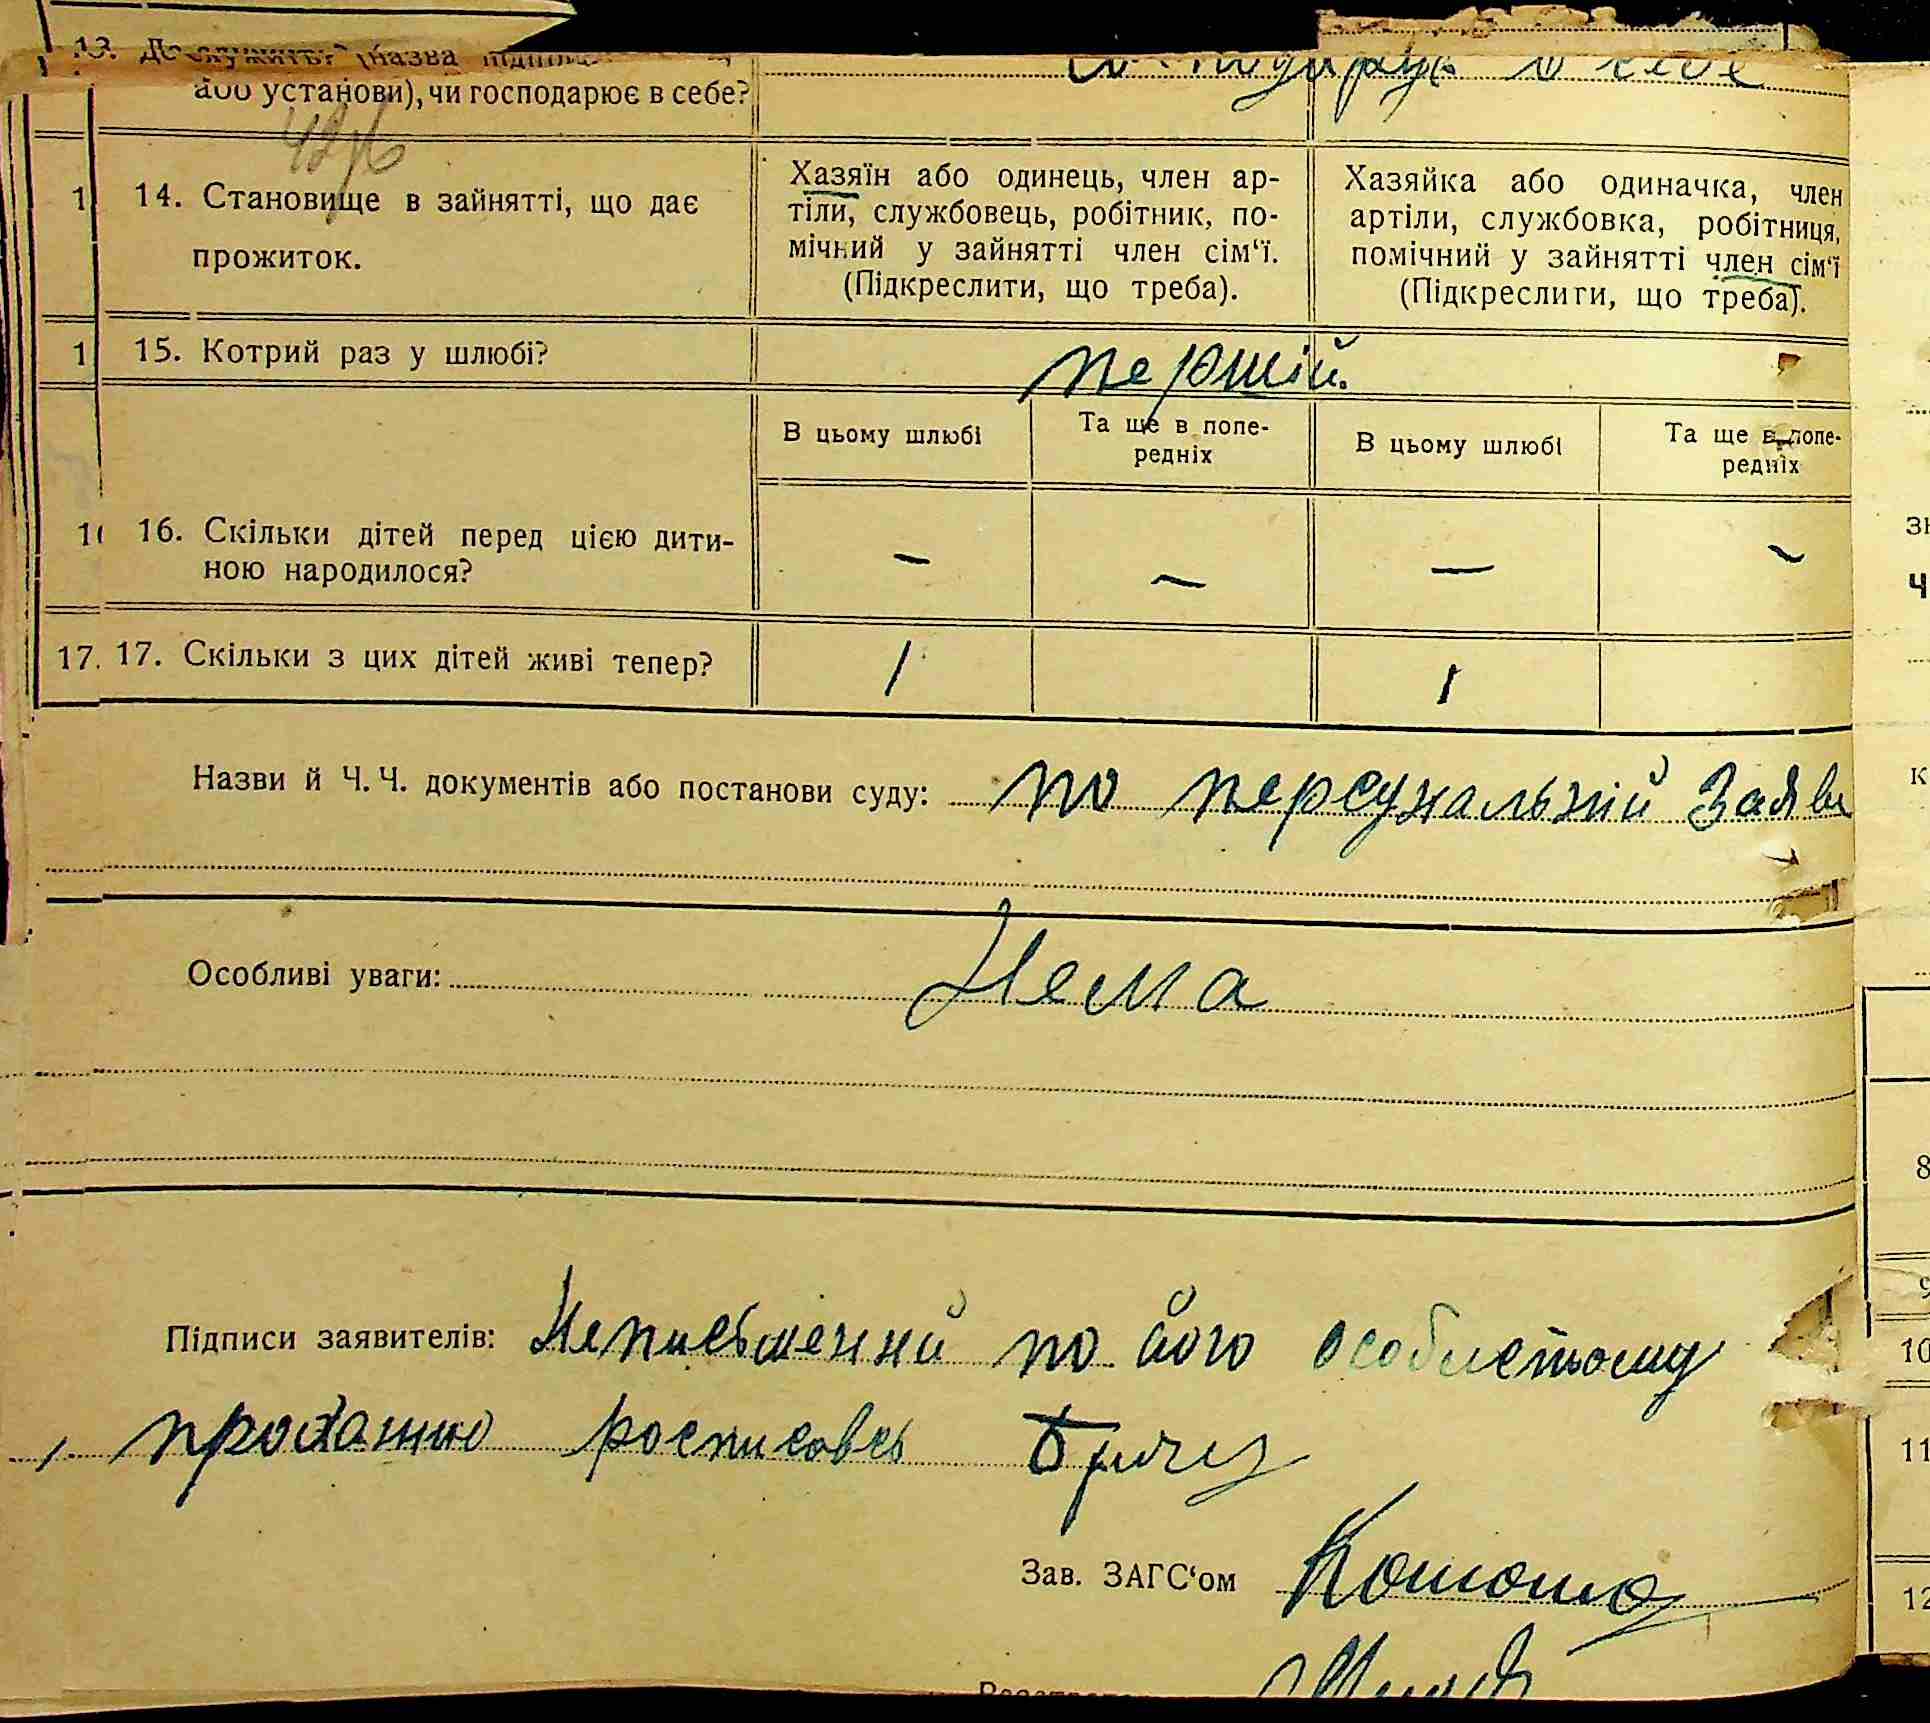 13. Де служить? (назва
або установи), чи господарює в себе?
Господарює в себе
14. Становище в зайнятті, що дає
прожиток.
Хазяїн або одинець, член ар-
тіли, службовець, робітник, по-
мічний у зайнятті член сім‘ї.
(Підкреслити, що треба).
Хазяйка або одиначка, член
артіли, службовка, робітниця,
помічний у зайнятті член сім‘ї
(Підкреслити, що треба).
15. Котрий раз у шлюбі?
перший.
В цьому шлюбі
Та ще в попе-
редніх
В цьому шлюбі
Та ще в попе-
редніх
16. Скільки дітей перед цією дити-
ною народилося?
— — — —
17. 17. Скільки з цих дітей живі тепер?
1 1
Назви й Ч. Ч. документів або постанови суду: по персунальній Заяві
Особливі уваги: Нема
Підписи заявителів: Неписьменний по його особистому
проханню росписовсь
Зав. ЗАГС‘ом